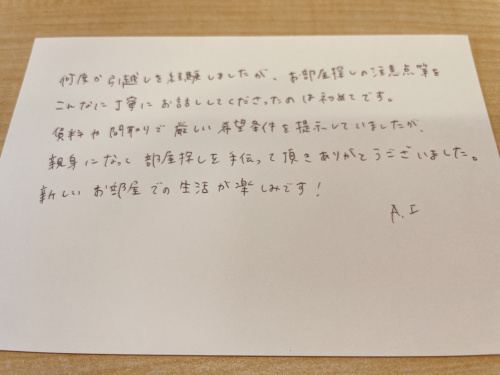 何度か引越しを経験しましたが、お部屋探しの注意点等を
こんなに丁寧にお話ししてくださったのは初めてです。
賃料や間取りで厳しい希望条件を提示していましたが、
親身になって部屋探しを手伝って頂きありがとうございました。
新しいお部屋での生活が楽しみです！
A.I